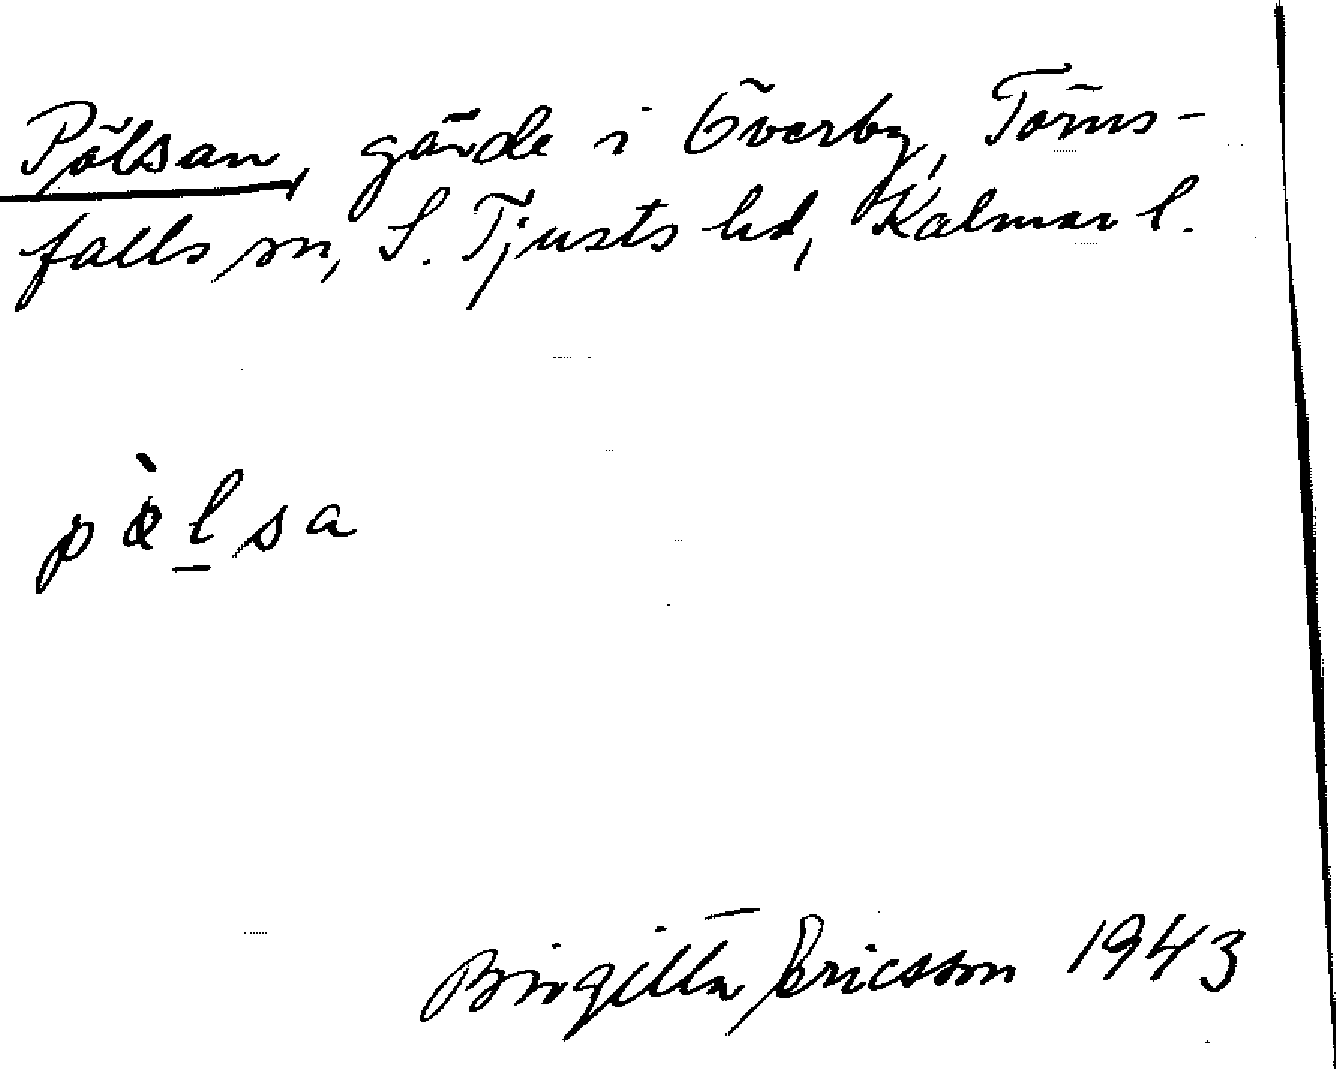 Pölsan, gärde i Överby, Törns-
falls sn, S. Tjusts hd, Kalmar l.
pòlsa
Birgitta Ericsson 1943